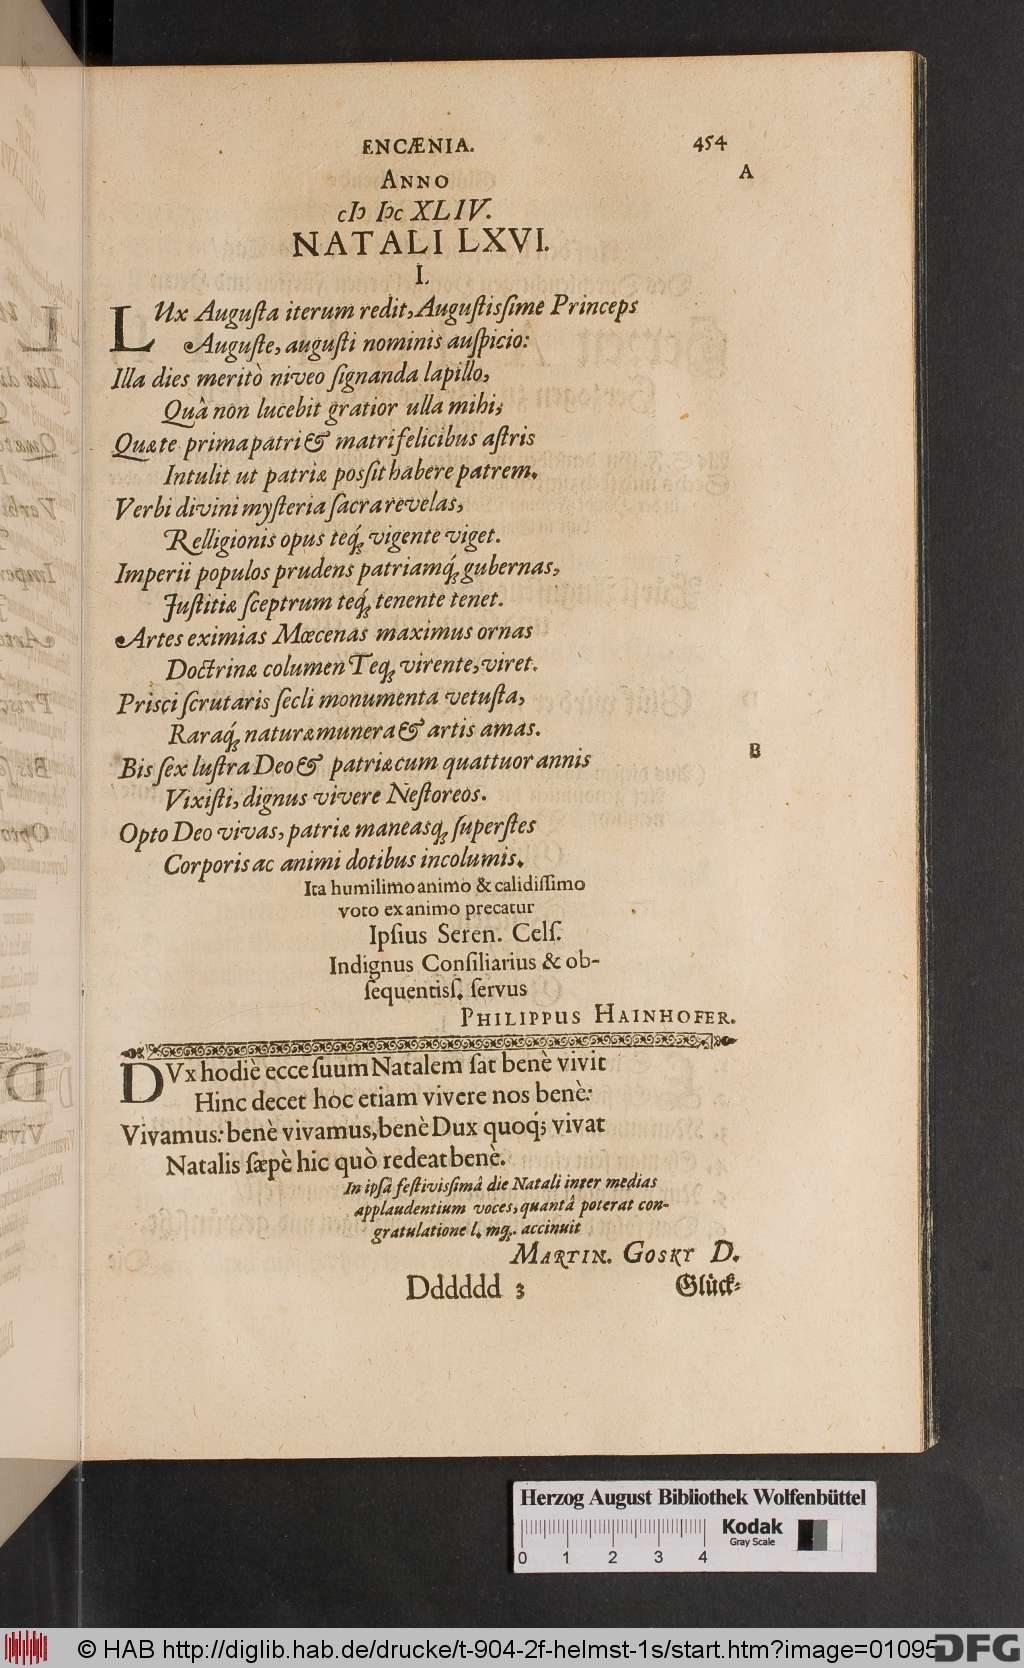 ENCÆNIA. 454
A
ANNO
cIↄ Iↄc XLIV.
NATALI LXVI.
I.
LUx Auguſta iterum redit, Auguſtisſime Princeps
Auguſte, auguſti nominis auſpicio:
Illa dies meritò niveo ſignanda lapillo,
Quâ non lucebit gratior ulla mihi;
Quæ te prima patri & matri felicibus aſtris
Intulit ut patriæ posſit habere patrem.
Verbi divini myſteria ſacra revelas,
Relligionis opus teq́ꝫ vigente viget.
Imperii populos prudens patriamq́ꝫ gubernas,
Juſtitiæ ſceptrum teq́ꝫ tenente tenet.
Artes eximias Mœcenas maximus ornas
Doctrinæ columen Teqꝫ virente, viret.
Prisci ſcrutaris ſecli monumenta vetuſta,
Raraq́ꝫ naturæ munera & artis amas.
B
Bis ſex luſtra Deo & patriæ cum quattuor annis
Vixiſti, dignus vivere Neſtoreos.
Opto Deo vivas, patriæ maneasqꝫ ſuperſtes
Corporis ac animi dotibus incolumis.
Ita humilimo animo & calidiſſimo
voto ex animo precatur
Ipſius Seren. Celſ.
Indignus Conſiliarius & ob-
ſequentisſ. ſervus
PHILIPPUS HAINHOFER.
DVx hodiè ecce ſuum Natalem ſat benè vivit
Hinc decet hoc etiam vivere nos benè:
Vivamus: benè vivamus, benè Dux quoq́; vivat
Natalis ſæpè hic quò redeat benè.
In ipſâ feſtivisſimâ die Natali inter medias
applaudentium voces, quantâ poterat con-
gratulatione l. mqꝫ. accinuit
MARTIN. GOSKY D.
Dddddd 3 Glück⸗
Herzog August Bibliothek Wolfenbüttel
Kodak
Gray Scale
0 1 2 3 4
© HAB http://diglib.hab.de/drucke/t-904-2f-helmst-1s/start.htm?image=01095
DFG